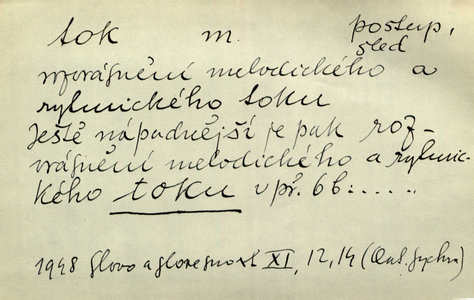 tok m. postup,
sled
rozvrásnění melodického a
rytmického toku
Ještě nápadnější je pak roz-
vrásnění melodického a rytmic-
kého toku v př. 6b: .....
1948 Slovo a slovesnost XI, 12, 14 (Ant. Sychra)